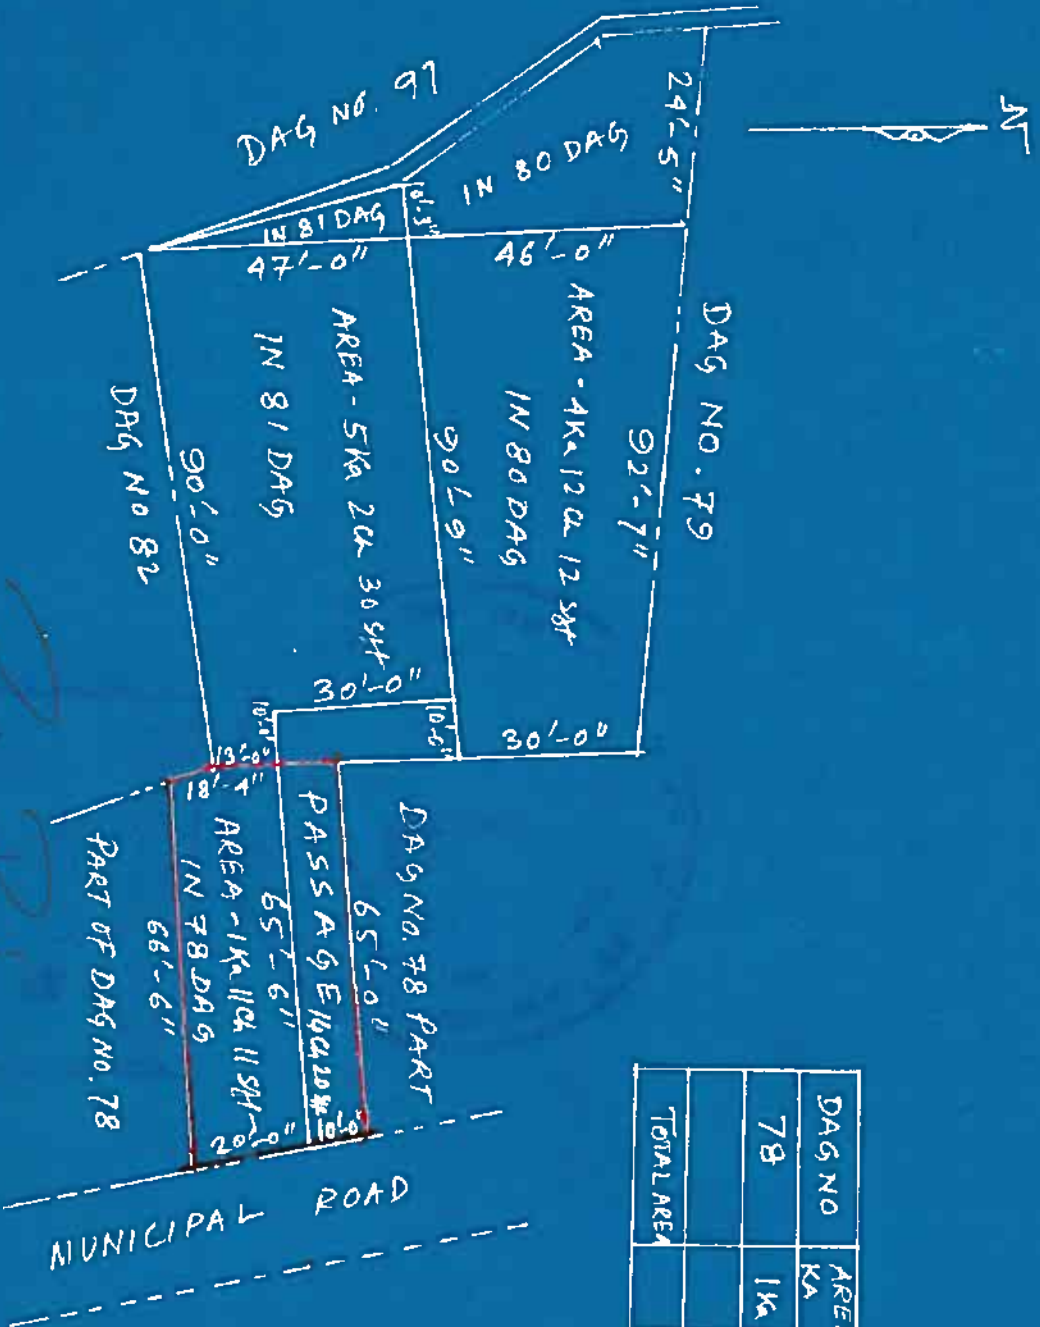 N
DAG NO. 97
24'-5"
IN 80 DAG
10'-3"
IN 81 DAG
47'-0"
46'-0"
DAG NO. 79
92'-7"
AREA - 4Ka 12Ch 12 Sft
IN 80 DAG
90'-9"
AREA - 5Ka 2Ch 30 Sft
IN 81 DAG
90'-0"
DAG NO 82
30'-0"
10'-0"
10'-0"
30'-0"
13'-0"
18'-4"
DAG NO. 78 PART
65'-0"
PASSAGE 14Ch 20
65'-6"
AREA - 1Ka 11Ch 11 Sft
IN 78 DAG
66'-6"
PART OF DAG NO. 78
10'-0"
20'-0"
MUNICIPAL ROAD
DAG NO
ARE
KA
78
1Ka
TOTAL AREA